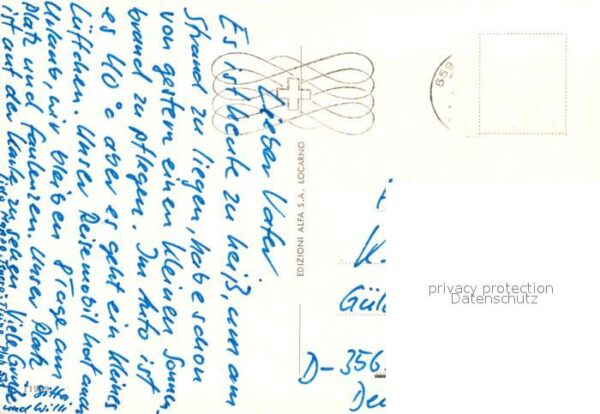 Lieber Vater
Es ist heute zu heiß, um am
Strand zu liegen, habe schon
von gestern einen kleinen Sonnen-
brand zu pflegen. Im Auto ist
es 40°C aber es geht ein kleines
Lüftchen. Unser Reisemobil hat auch
Urlaub, wir bleiben 8 Tage am
Platz und faulenzen. Unser Platz
ist auf der Karte zu sehen. Viele Grüße
und Willi
EDIZIONI ALFA S.A. LOCARNO
659
K.
Gül
D-356
Deu
privacy protection
Datenschutz